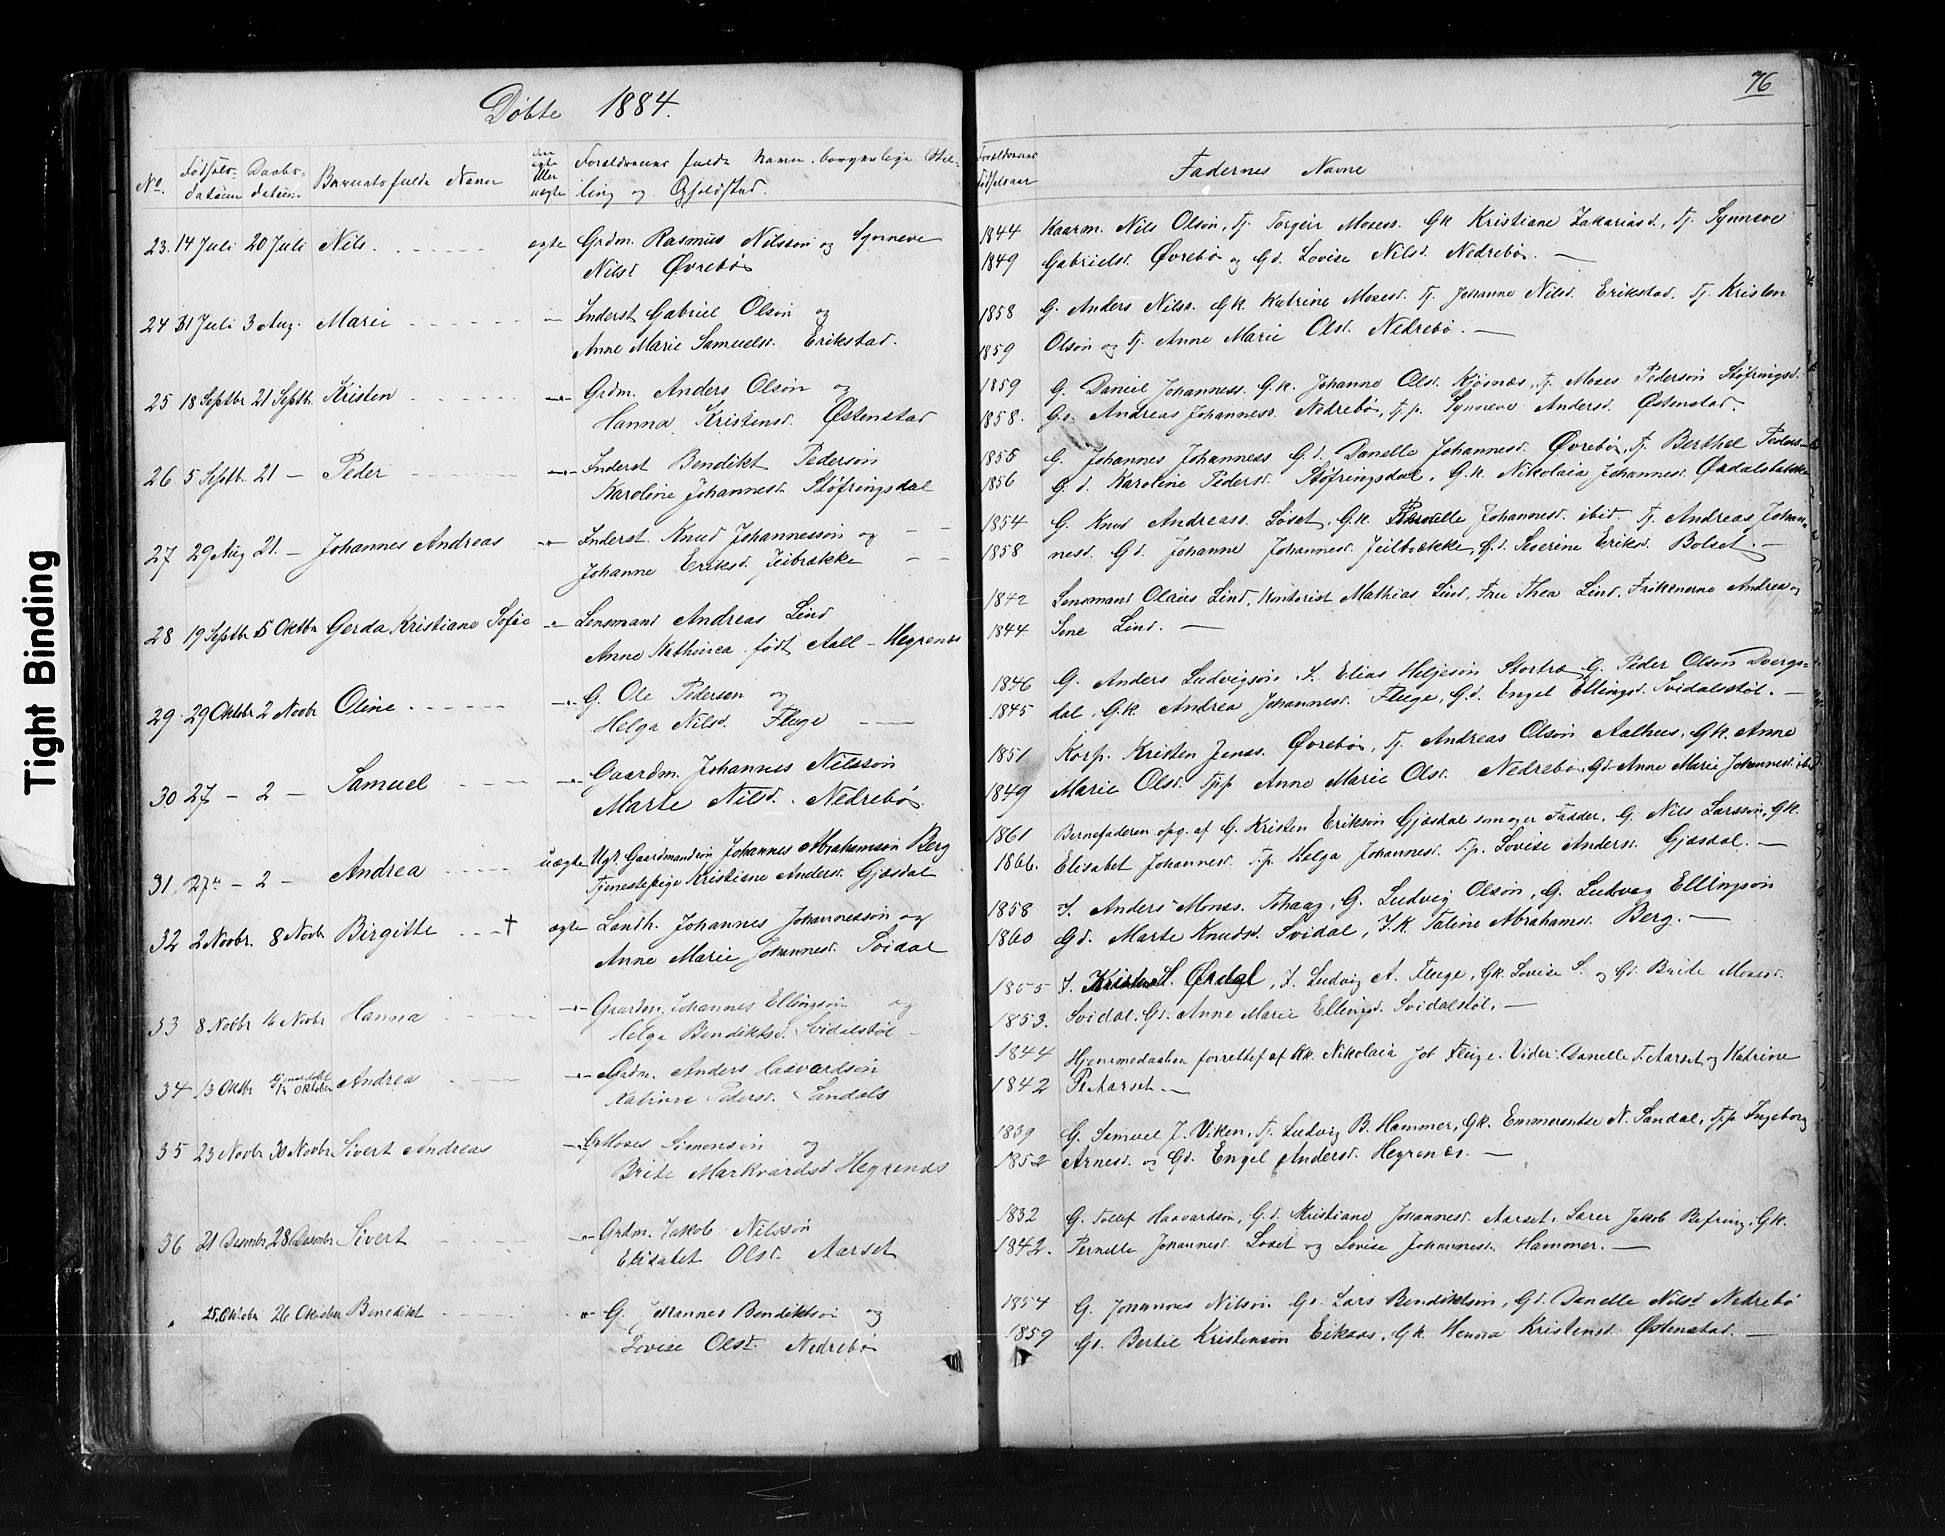 Døbte 1884.
76
No.
Fødsels-
datum
Daabs-
datum
Barnets fulde Navn
om
ægte
eller
uægte
Forældrenes fulde Navn, borgerlige Stil-
ling og Opholdsted.
Forældrenes
Fødselsaar
Faddernes Navne
23. 14 Juli 20 Juli Nils. ægte Grdm. Rasmus Nilsson og Synneve
Nilsd. Øvrebø
1844 Kaarm. Nils Olson, Tj. Torgeir Moses. Gk Kristiane Zakariasd., Tj. Synneve
1849 Gabrielsd. Øvrebø og Gd. Lovise Nilsd. Nedrebø. —
24 31 Juli 3 Aug. Marie — Inderst Gabriel Olson og
Anne Marie Samuelsd. Erikstad.
1858 G. Anders Nilss. Gk. Katrine Mosesd. Tj. Johanne Nilsd. Erikstad, Tj. Kristen
1859 Olson og Tj. Anne Marie Olsd. Nedrebø. —
25 18 Septbr 21 Septbr. Kristen —"— Grdm. Anders Olson og
Hanna Kristensd. Østenstad
1859 G. Daniel Johanness. G.k. Johanne Olsd. Kjøsnæs, Tj. Moses Pederson Støfringsd.
1858. Gs. Andreas Johanness. Nedrebø, Tj.p. Synneve Andersd. Østenstad.
26 5 Septb. 21 — Peder —"— Inderst Bendikt Pederson
Karoline Johannesd. Støfringsdal
1855 G. Johannes Johanness G.d. Danelle Johannesd. Øvrebø, Tj. Berthel Peders-
1856 G.d. Karoline Pedersd. Støfringsdal, G.k. Nikolaia Johannesd. Ørdalsbakke
27 29 Aug 21. — Johannes Andreas —"— Inderst Knud Johannesson og — —
Johanne Eriksd. Jeibrække —
1854 G. Knud Andreass. Løset, G.k. Pernelle Johannesd. ibid, Tj. Andreas Johan-
1858 nesd. Gd. Johanne Johannesd. Jeilbrække, G.d. Severine Eriksd. Bolset. —
28 19 Septbr 5 Oktbr Gerda Kristiane Sofie —"— Lensmand Andreas Lind
Anne Kathinca født Aall – Hegrenæs
1842 Lensmand Olaus Lind, Kontorist Mathias Lind, Fru Thea Lind, Frøknerne Andrea og
1844 Sine Lind. —
29. 29 Oktobr 2 Novbr Oline —"— G. Ole Pedersen og
Helga Nilsd. Fluge —
1846 G. Anders Ludvigson, I. Elias Heljeson Stortræ, G. Peder Olson Dvergs-
1845 dal, G.k. Andrea Johannesd. Fluge, G.d. Engel Ellingsd. Svidalsstøl. —
30 27 — 2 — Samuel —"— Gaardm. Johannes Nilsson
Marte Nilsd. Nedrebø.
1851 Korp. Kristen Jenss. Øvrebø, Tj. Andreas Olson Aalhus, Gk. Anne
1849 Marie Olsd. Tj.p Anne Marie Olsd. Nedrebø, Gd. Anne Marie Johannesd. ibid
31. 27 — 2 — Andrea uægte Ugt. Gaardmandssøn Johannes Abrahamson Berg
Tjenestepige Kristiane Andersd. Gjæsdal
1861 Bernefaderen opg. af G. Kristen Erikson Gjæsdal som og er Fadder, G. Nils Larsson, Gk.
1866. Elisabet Johannesd. T.p. Helga Johannesd. T.p. Lovise Andersd. Gjæsdal. —
32 2 Novbr. 8 Novbr Birgitte † ægte Landh. Johannes Johannesson og
Anne Marie Johannesd. Svidal
1858 I. Anders Monss. Ahaag, G. Ludvig Olson, G. Ludvig Ellingson
1860 Gd. Marte Knudsd. Svidal, I.k. Taline Abrahamsd. Berg. —
33 8 Novbr 16 Novbr Hanna —"— Gaardm. Johannes Ellingson og
Helga Bendiktsd. Svidalstøl —
1855 I. Kristen S. Ørdal, I. Ludvig A. Fluge, Gk. Lovise S. og Gd. Brite Mosesd.
1853. Svidal, Gd. Anne Marie Ellingsd. Svidalstøl. —
34 13 Oktbr Hjemmedøbt Oktober Andrea —"— Grdm. Anders Haavardson
Katrine Pedersd. Sandals
1844 Hjemmedaaben forrettet af Kk. Nikolaia Joh Fluge. Vider: Danelle T. Aarset og Katrine
1842 P. Aarset. —
35 23 Novbr 30 Novbr Sivert Andreas —"— Gr Moses Simonson og
Brite Markvardsd Hegrenæs
1839 G. Samuel J. Viken, Tj. Ludvig B. Hammer, Gk. Emmerentse N. Sandal, Tj.p Ingeborg
1852 Arnesd. og Gd. Engel Andersd. Hegrenæs. —
36 21 Desmbr. 28 Desmbr Sivert —"— Grdm. Jakob Nilsson
Elisabet Olsd. Aarset
1832 G. Tollef Haavardson, G.d. Kristiane Johannesd. Aarset, Lærer Jakob Befring, Gk.
1842. Pernelle Johannesd. Løset og Lovise Johannesd. Hammer. —
" 25 Oktobr 26 Oktober Benedikt " G. Johannes Bendiktson og
Lovise Olsd. Nedrebø
1854 G. Johannes Nilson Gs. Lars Bendiktson, Gd. Danelle Nilsd Nedrebø
1859 Gs. Bertil Kristenson Eikaas, Gk. Hanna Kristensd Østenstad. —
Tight Binding